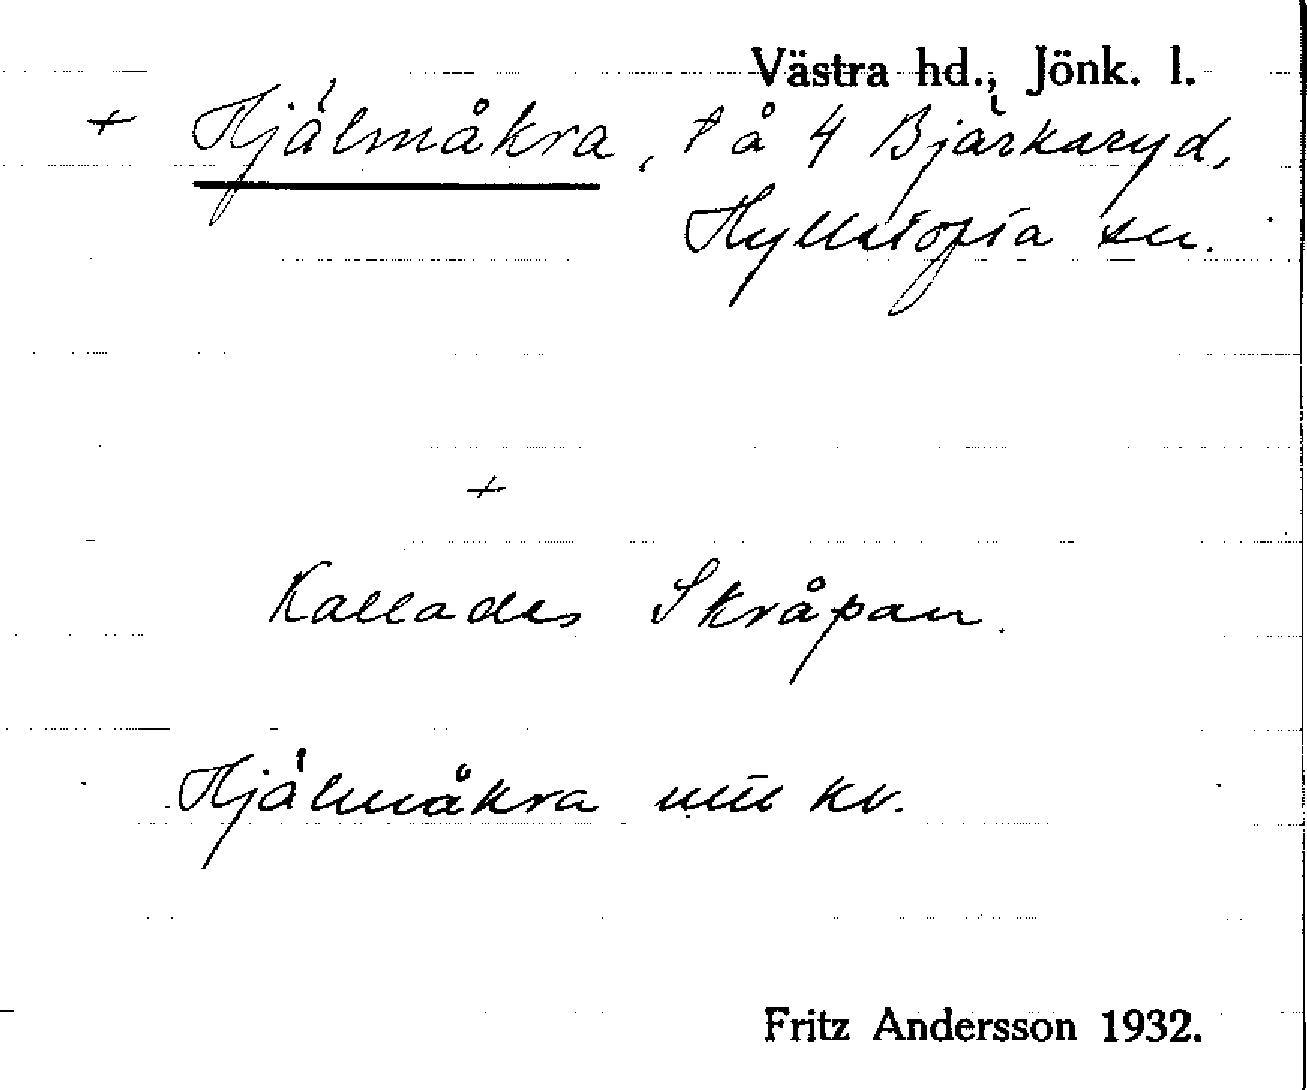 Västra hd., Jönk. l.
+ Hjälmåkra, t å 4 Bjärkaryd,
Hylletofta sn.
+
Kallades Skråpan.
Hjälmåkra mit kv.
Fritz Andersson 1932.